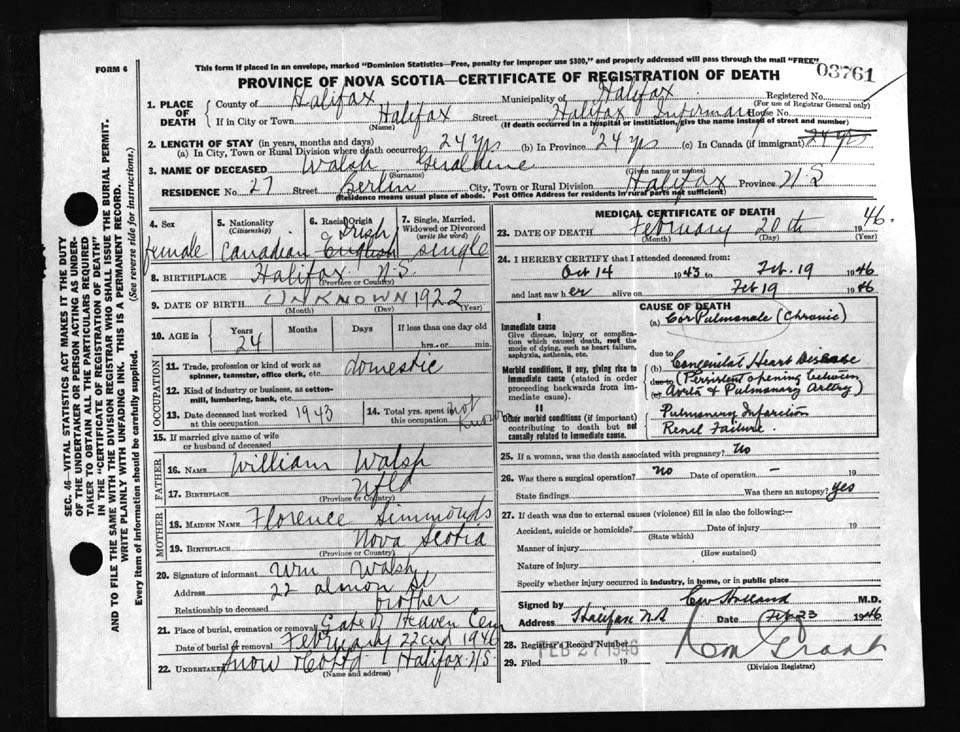 This form if placed in an envelope, marked "Dominion Statistics—Free, penalty for improper use $300," and properly addressed will pass through the mail "FREE"
FORM 6
PROVINCE OF NOVA SCOTIA—CERTIFICATE OF REGISTRATION OF DEATH
03761
1. PLACE OF DEATH
County of Halifax Municipality of Halifax Registered No.
(For use of Registrar General only)
If in City or Town Halifax Street Halifax Infirmary House No.
(Name) (If death occurred in a hospital or institution, give the name instead of street and number)
2. LENGTH OF STAY (in years, months and days)
(a) In City, Town or Rural Division where death occurred 24 yrs (b) In Province 24 yrs (c) In Canada (if immigrant) 24 yrs
3. NAME OF DECEASED Walsh Geraldine
(Surname) (Given name or names)
RESIDENCE No. 27 Street Berlin City, Town or Rural Division Halifax Province N.S
(Residence means usual place of abode. Post Office Address for residents in rural parts not sufficient)
4. Sex female
5. Nationality (Citizenship) Canadian
6. Racial Origin Irish English
7. Single, Married, Widowed or Divorced (write the word) single
8. BIRTHPLACE Halifax N.S.
(Province or Country)
9. DATE OF BIRTH UNKNOWN 1922
(Month) (Day) (Year)
10. AGE in Years 24 Months Days If less than one day old
hrs. or min.
OCCUPATION
11. Trade, profession or kind of work as spinner, teamster, office clerk, etc. domestic
12. Kind of industry or business, as cotton-mill, lumbering, bank, etc.
13. Date deceased last worked at this occupation 1943
14. Total yrs. spent in this occupation not known
15. If married give name of wife or husband of deceased
FATHER
16. NAME William Walsh
17. BIRTHPLACE Nfld
(Province or Country)
MOTHER
18. MAIDEN NAME Florence Simmonds
19. BIRTHPLACE Nova Scotia
(Province or Country)
20. Signature of informant Wm Walsh
Address 22 almon St
Relationship to deceased brother
21. Place of burial, cremation or removal Gate of Heaven Cem
Date of burial or removal February 22nd 1946
22. Undertaker Snow & Co Ltd Halifax N.S.
(Name and address)
MEDICAL CERTIFICATE OF DEATH
23. DATE OF DEATH February 20th 1946.
(Month) (Day) (Year)
24. I HEREBY CERTIFY that I attended deceased from:
Oct 14 1943 to Feb. 19 1946
and last saw her alive on Feb 19 1946
CAUSE OF DEATH
I
Immediate cause
Give disease, injury or complication which caused death, not the mode of dying, such as heart failure, asphyxia, asthenia, etc.
(a) Cor Pulmonale (Chronic)
due to
Morbid conditions, if any, giving rise to immediate cause (stated in order proceeding backwards from immediate cause).
(b) Congenital Heart Disease
due to (Persistent opening between
(c) Aorta & Pulmonary Artery)
II
Other morbid conditions (if important) contributing to death but not causally related to immediate cause.
Pulmonary Infarction
Renal Failure.
25. If a woman, was the death associated with pregnancy? No
26. Was there a surgical operation? No Date of operation – 19
State findings Was there an autopsy? yes
27. If death was due to external causes (violence) fill in also the following:—
Accident, suicide or homicide? Date of injury 19
(State which)
Manner of injury
(How sustained)
Nature of injury
Specify whether injury occurred in industry, in home, or in public place
Signed by CW Holland M.D.
Address Halifax NS Date Feb 23 1946
28. Registrar's Record Number
29. Filed FEB 27 1946 19
(Division Registrar)
SEC. 46—VITAL STATISTICS ACT MAKES IT THE DUTY OF THE UNDERTAKER OR PERSON ACTING AS UNDERTAKER TO OBTAIN ALL THE PARTICULARS REQUIRED IN THE "CERTIFICATE OF REGISTRATION OF DEATH" AND TO FILE THE SAME WITH THE DIVISION REGISTRAR WHO SHALL ISSUE THE BURIAL PERMIT.
WRITE PLAINLY WITH UNFADING INK. THIS IS A PERMANENT RECORD.
Every item of information should be carefully supplied. (See reverse side for instructions.)